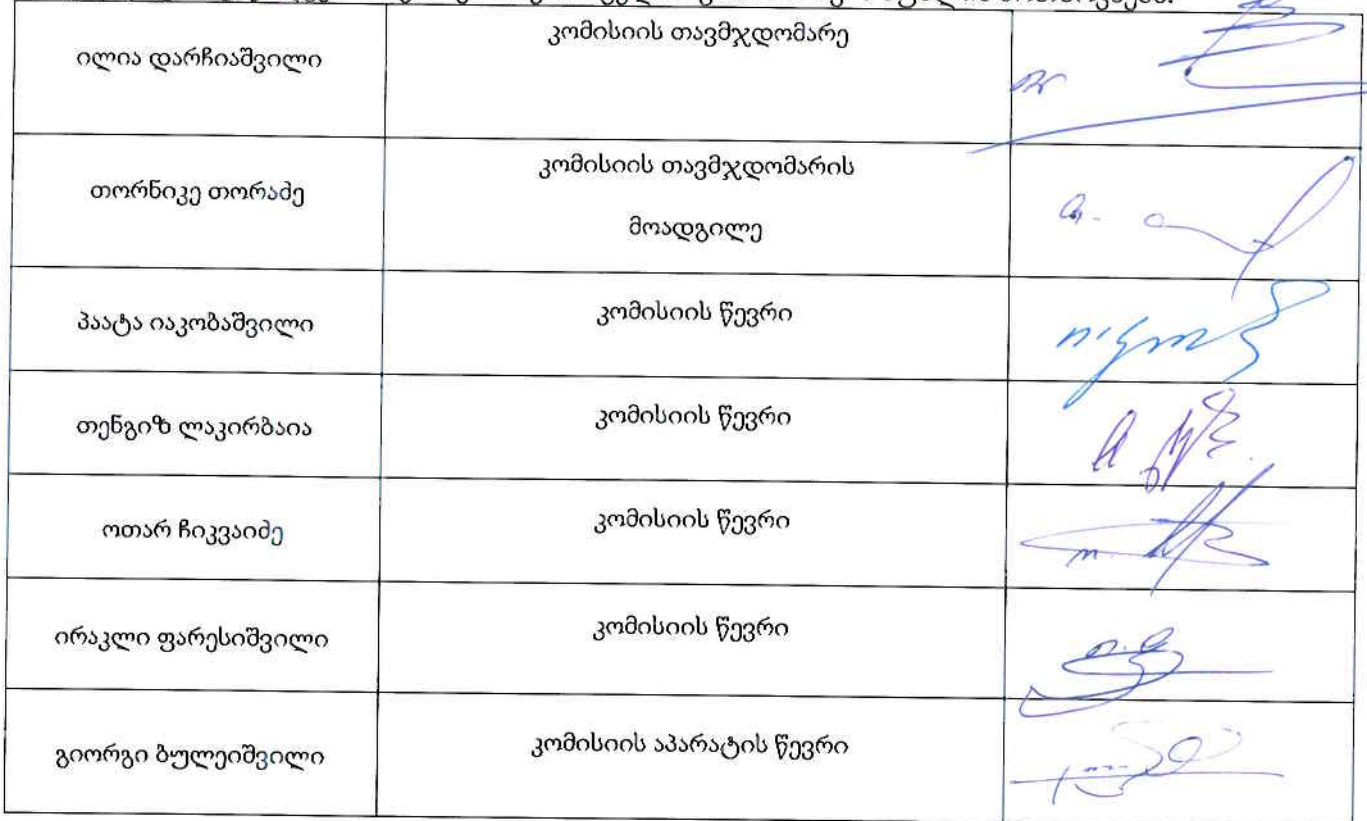 ილია დარჩიაშვილი
კომისიის თავმჯდომარე
თორნიკე თორაძე
კომისიის თავმჯდომარის
მოადგილე
პაატა იაკობაშვილი
კომისიის წევრი
თენგიზ ლაკირბაია
კომისიის წევრი
ოთარ ჩიკვაიძე
კომისიის წევრი
ირაკლი ფარესიშვილი
კომისიის წევრი
გიორგი ბულეიშვილი
კომისიის აპარატის წევრი